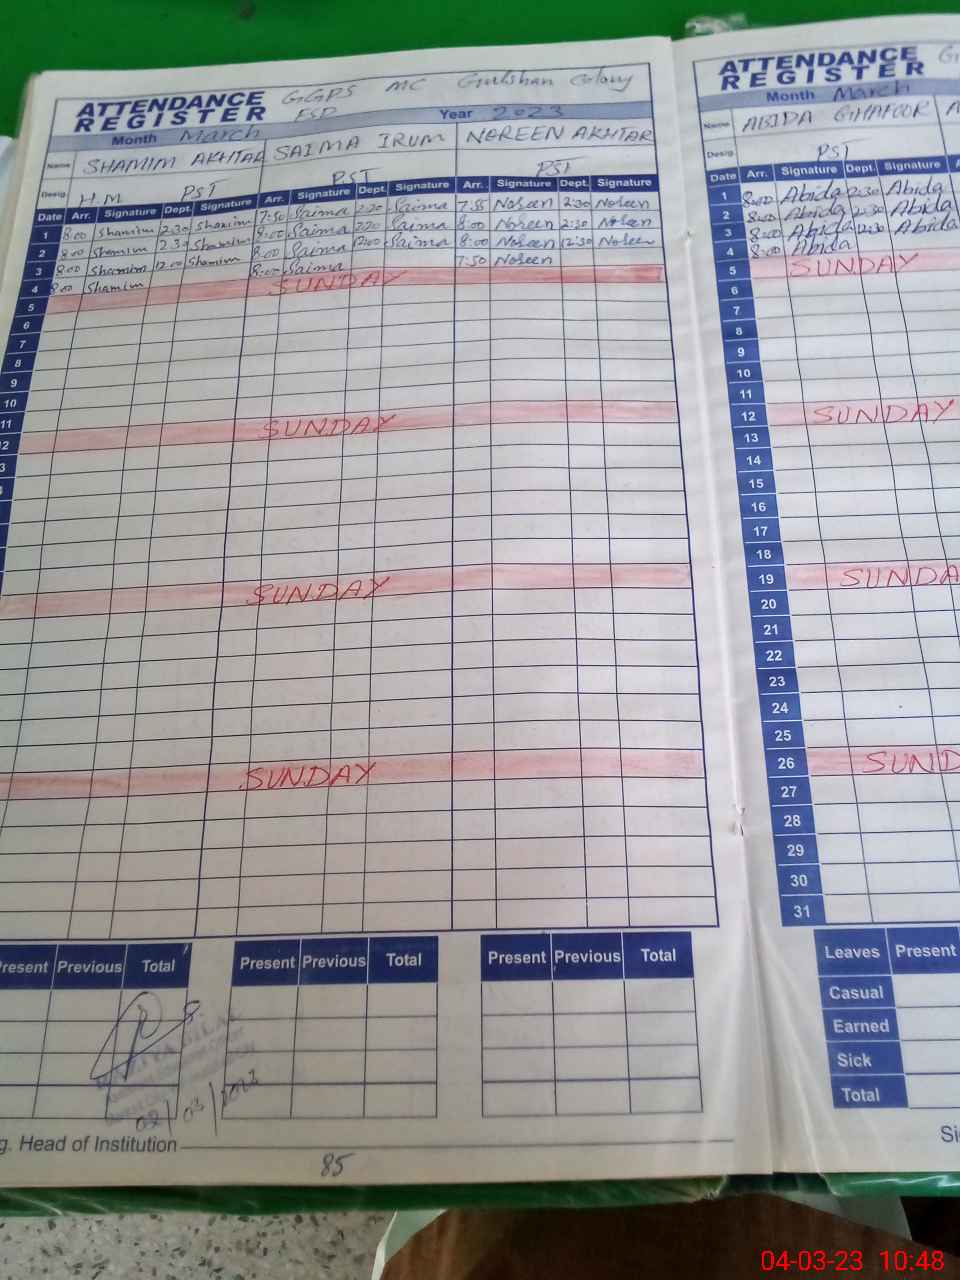 ATTENDANCE REGISTER GGPS MC Gulshan Colony FSD
Month March Year 2023
Name SHAMIM AKHTAR SAIMA IRUM NOREEN AKHTAR
Desig. H.M PST PST PST
Date Arr. Signature Dept. Signature Arr. Signature Dept. Signature Arr. Signature Dept. Signature
1 8:00 Shamim 2:30 Shamim 7:50 Saima 2:30 Saima 7:55 Noreen 2:30 Noreen
2 8:00 Shamim 2:30 Shamim 8:00 Saima Saima 8:00 Noreen 2:30 Noreen
3 8:00 Shamim 12:00 Shamim 8:00 Saima 12:00 Saima 8:00 Noreen 12:30 Noreen
4 8:00 Shamim 8:00 Saima 7:50 Noreen
5 SUNDAY
6
7
8
9
10
11
12 SUNDAY
SUNDAY
SUNDAY
Present Previous Total Present Previous Total Present Previous Total
02/03/2023
Head of Institution
85
ATTENDANCE REGISTER
Month March
Name ABIDA GHAFOOR
Desig. PST
Date Arr. Signature Dept. Signature
1 8:00 Abida 2:30 Abida
2 8:00 Abida 2:30 Abida
3 8:00 Abida 12:30 Abida
4 8:00 Abida
5 SUNDAY
6
7
8
9
10
11
12 SUNDAY
13
14
15
16
17
18
19 SUNDA
20
21
22
23
24
25
26 SUND
27
28
29
30
31
Leaves Present
Casual
Earned
Sick
Total
04-03-23 10:48